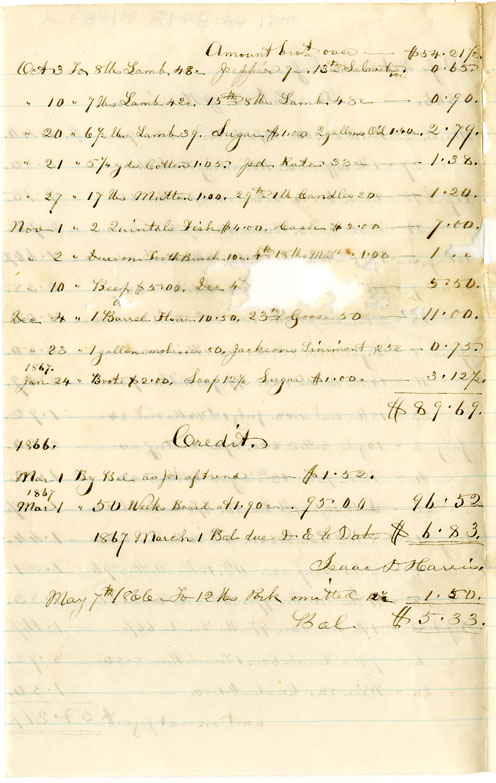 Amount brot over — $54.21½
Oct 3 To 8 lbs Lamb. 48c 13th 0.65
" 10 " 7 lbs Lamb 42c. 15th 8 lbs Lamb. 48c — 0.90
" 20 " 6½ lbs Lamb 39. Sugar $1.00 2 gallons Oil 1.40. 2.79
" 21 " yds Cotton 1.05. pd. Kate 33c — 1.38
" 27 " 17 lbs Mutton 1.00. 29th 1 lb Candles 20 — 1.20
Nov 1 " 2 Quintals Fish $4.00. Cash $3.00 — 7.00
2 " Tooth Brush 10c. 18 lbs 1.08 1.
" 10 " Beef $5.00. Dec 4th 5.50
Dec 4 " 1 Barrel Flour 10.50. 23rd Goose 50 — 11.00
" 23 " 1 gallon molasses 50. Jacksons Liniment 25c — 0.75
1867.
Jan 24 " Boots $2.00. Soap 12½ Sugar $1.00. — 3.12½
$89.69.
1866. Credit.
Mar 1 By Bal as per afternd — $1.52.
1867
Mar 1 " 50 Weeks Board at 1.90c. 95.00 96.52
1867 March 1 Bal due I. E. to Date $6.83.
Isaac D Harris.
May 7th 1866 To 12 lbs Pork omitted — 1.50.
Bal $5.33.